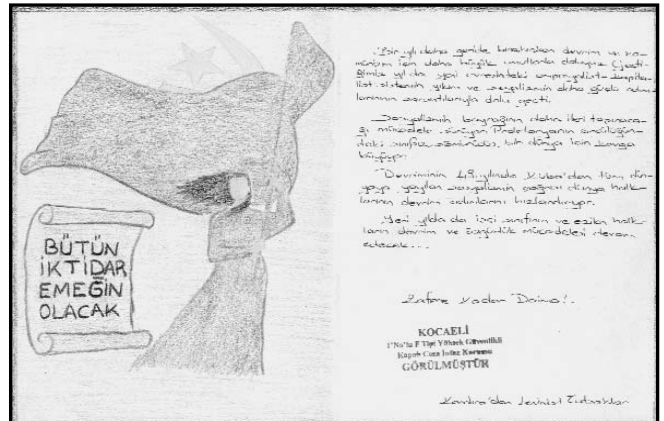 BÜTÜN
İKTİDAR
EMEĞİN
OLACAK
Bir yılı daha geride bırakırken devrim ve ko-
münizm için daha büyük umutlarla doluyuz. Geçti-
ğimiz yıl da
list sistemin yıkım ve sosyalizmin daha
larının daha geçti.
Sosyalizmin bayrağını daha ileri taşınaca-
ğı mücadele sürüyor. Proletaryanın öncülüğün-
deki sınıfsız, sömürüsüz, bir dünya için kavga
büyüyor.
Devriminin 49. yılında Küba'dan tüm dün-
yaya yayılan sosyalizmin çağrısı dünya halk-
larının devrim adımlarını hızlandırıyor.
Yeni yılda da işçi sınıfının ve ezilen halk-
ların devrim ve özgürlük mücadelesi devam
edecek...
Zafere Kadar Daima!
KOCAELİ
1 No'lu F Tipi Yüksek Güvenlikli
Kapalı Ceza İnfaz Kurumu
GÖRÜLMÜŞTÜR
Kandıra'dan Leninist Tutsaklar